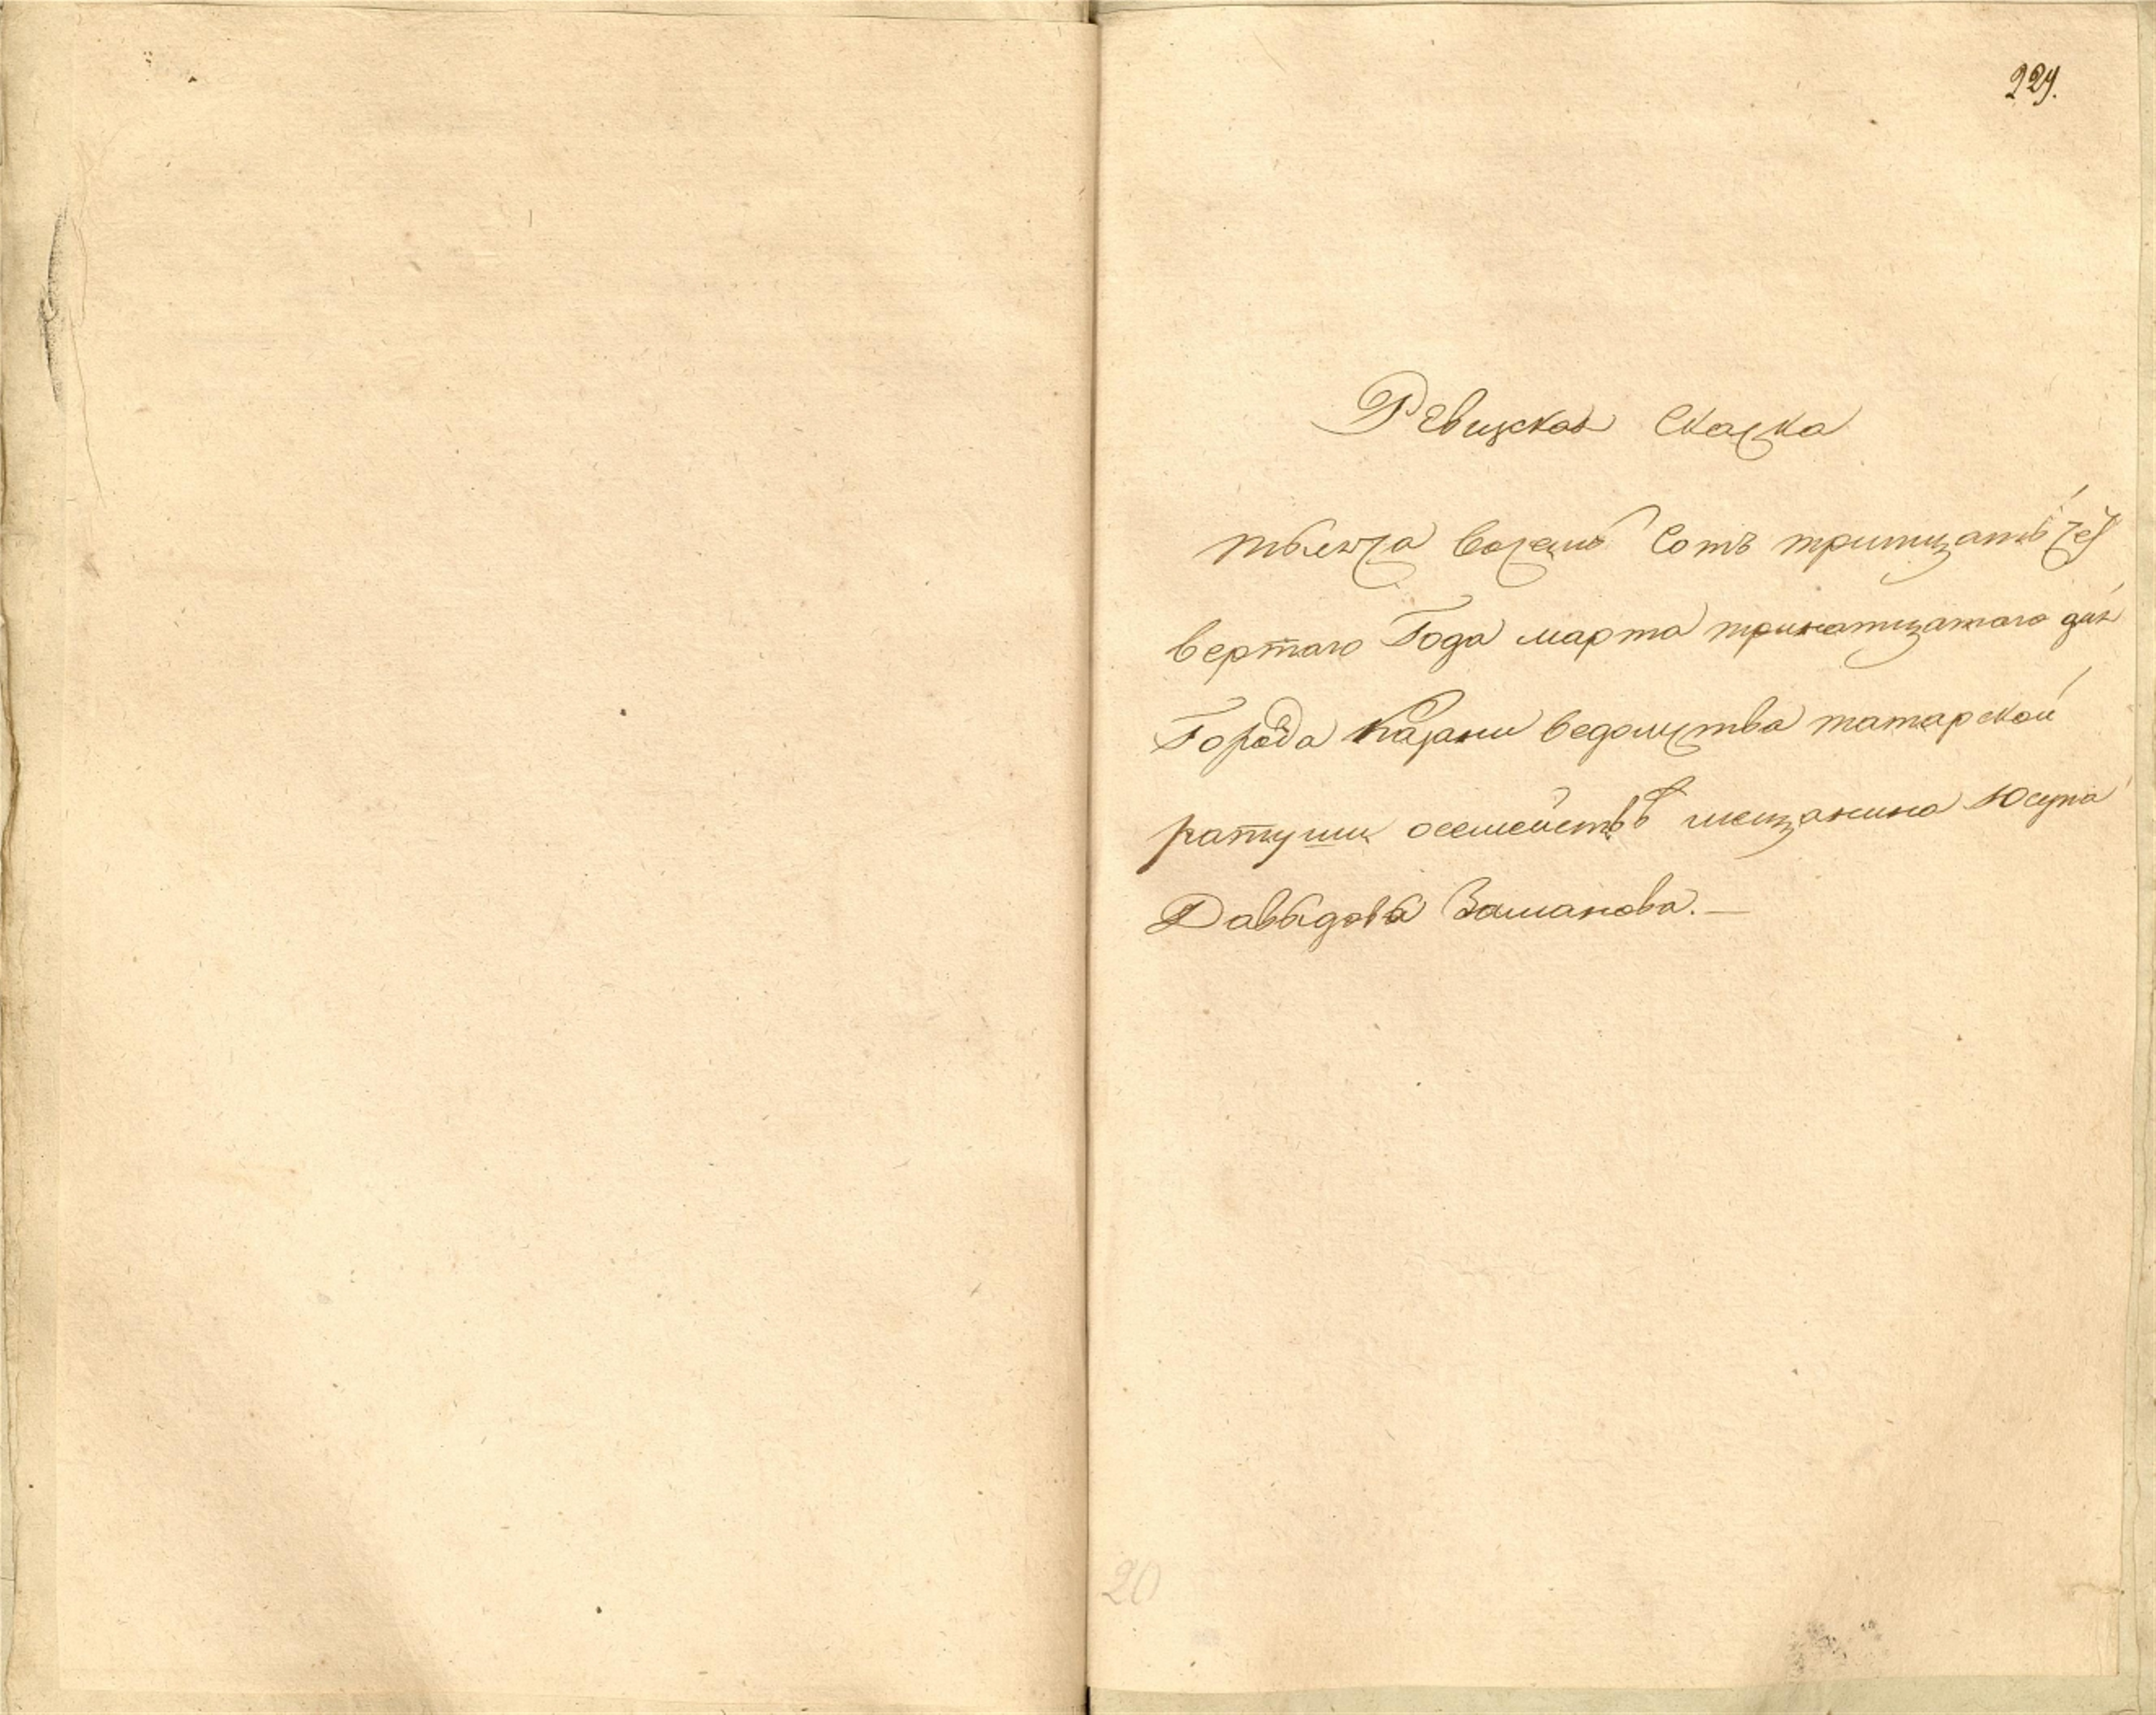 229.
Ревизская Скаска
тысяча восемь Сотъ тритцать чет
вертаго Года марта тринатцатаго дня
Города Казани ведомства татарской
ратуши осемействѣ мещанина Юсупа
Давыдова Заманова. —
20